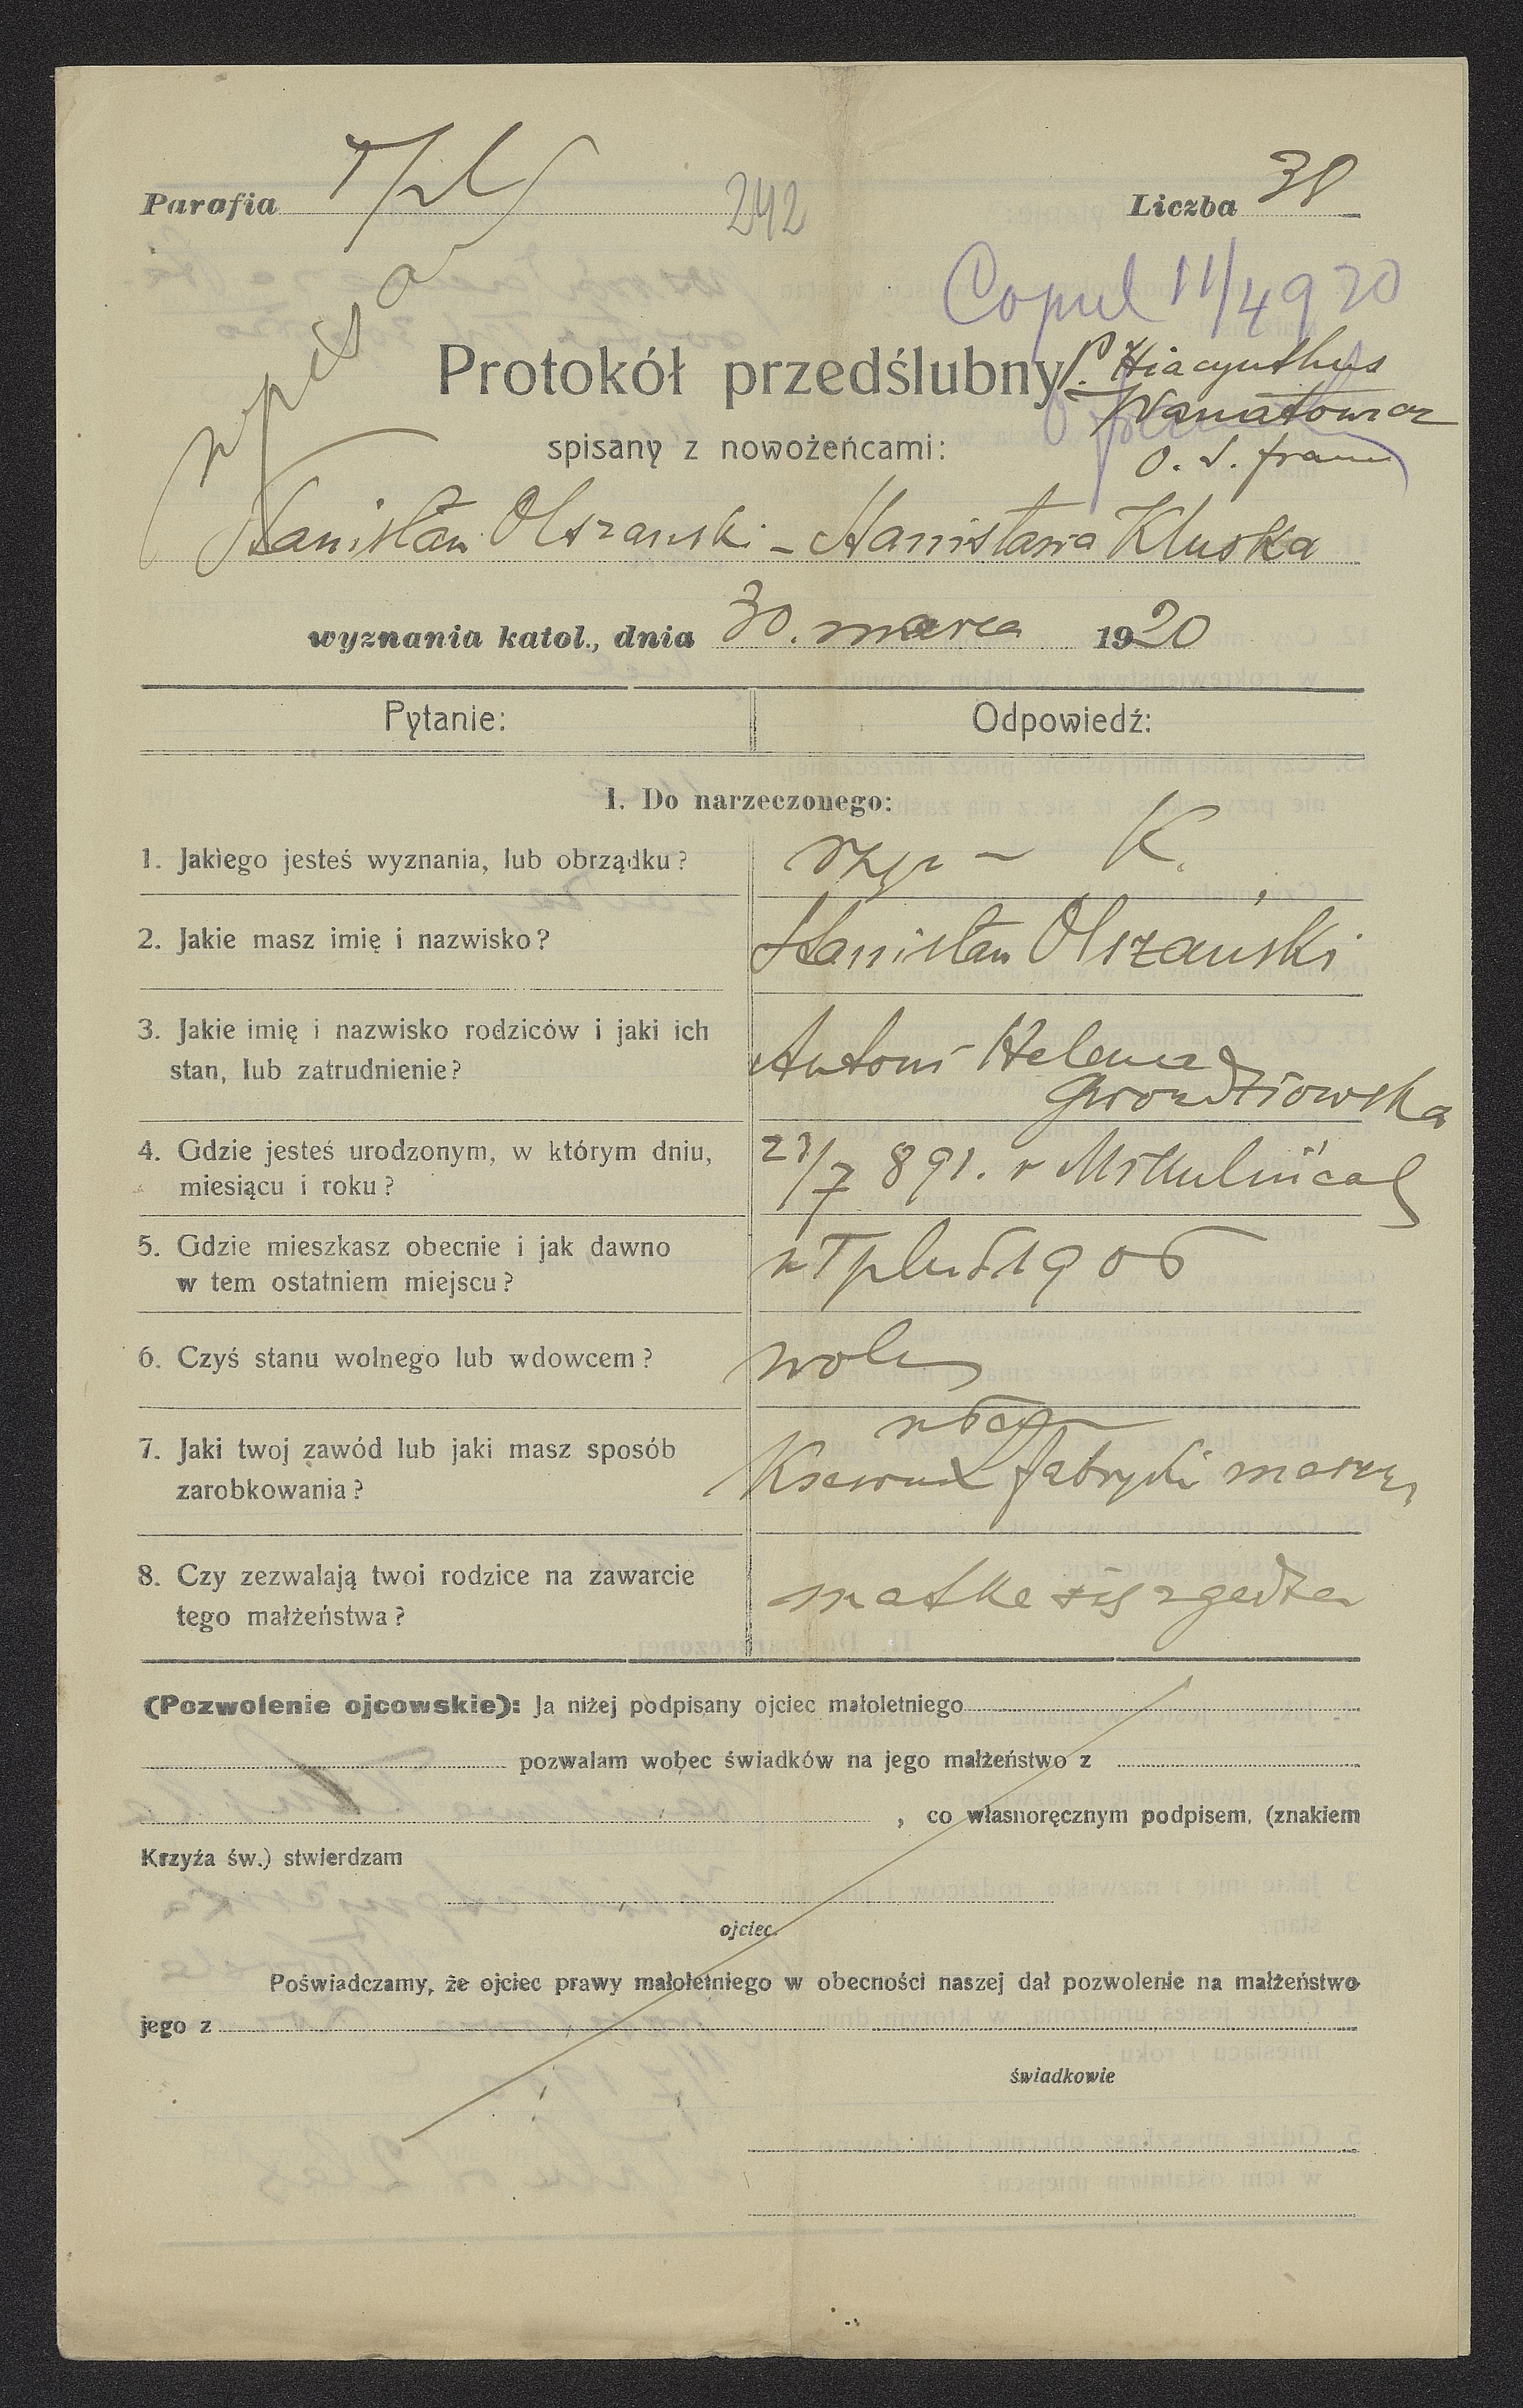 Parafia Tpl Liczba 38
242
wpisa
Copul 11/4 920
Protokół przedślubny
P. Hiacynthus
Wanatowicz
O. S. franc
spisany z nowożeńcami:
Stanisław Olszański – Stanisława Kluska
wyznania katol., dnia 30. marca 1920
Pytanie: Odpowiedź:
I. Do narzeczonego:
1. Jakiego jesteś wyznania, lub obrządku? rzym – K.
2. Jakie masz imię i nazwisko? Stanisław Olszański
3. Jakie imię i nazwisko rodziców i jaki ich Antoni Helena
stan, lub zatrudnienie? Gwoździowska
4. Gdzie jesteś urodzonym, w którym dniu, 23/7 891. w Mikulińcach
miesiącu i roku?
5. Gdzie mieszkasz obecnie i jak dawno w Tplu 1906
w tem ostatniem miejscu?
6. Czyś stanu wolnego lub wdowcem? wolny
7. Jaki twoj zawód lub jaki masz sposób
zarobkowania? fabryki maszyn
8. Czy zezwalają twoi rodzice na zawarcie matka się zgadza
tego małżeństwa?
(Pozwolenie ojcowskie): Ja niżej podpisany ojciec małoletniego
pozwalam wobec świadków na jego małżeństwo z
, co własnoręcznym podpisem, (znakiem
Krzyża św.) stwierdzam
ojciec.
Poświadczamy, że ojciec prawy małoletniego w obecności naszej dał pozwolenie na małżeństwo
jego z
świadkowie